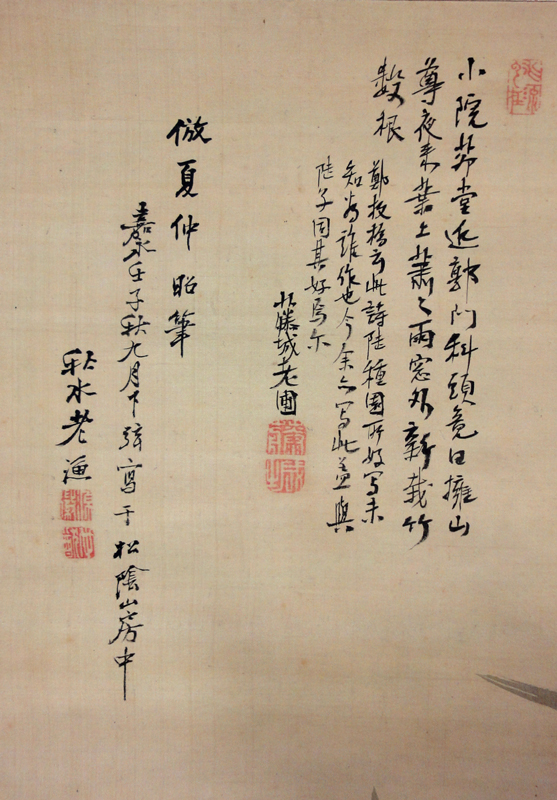 小院茆堂近郭門科頭竟日擁山
尊夜来葉上蕭々雨窓外新栽竹
数根
鄭板橋云此詩陸種園所好写未
知為誰作也今余亦写此蓋與
陸子同其好焉尔
藤城老圃
倣夏仲昭筆
嘉永壬子秋九月下弦寫于松陰山房中
秋水老漁